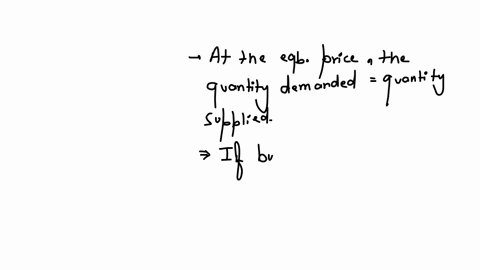 → At the eqb. price, the
quantity demanded = quantity
supplied.
⇒ If bu